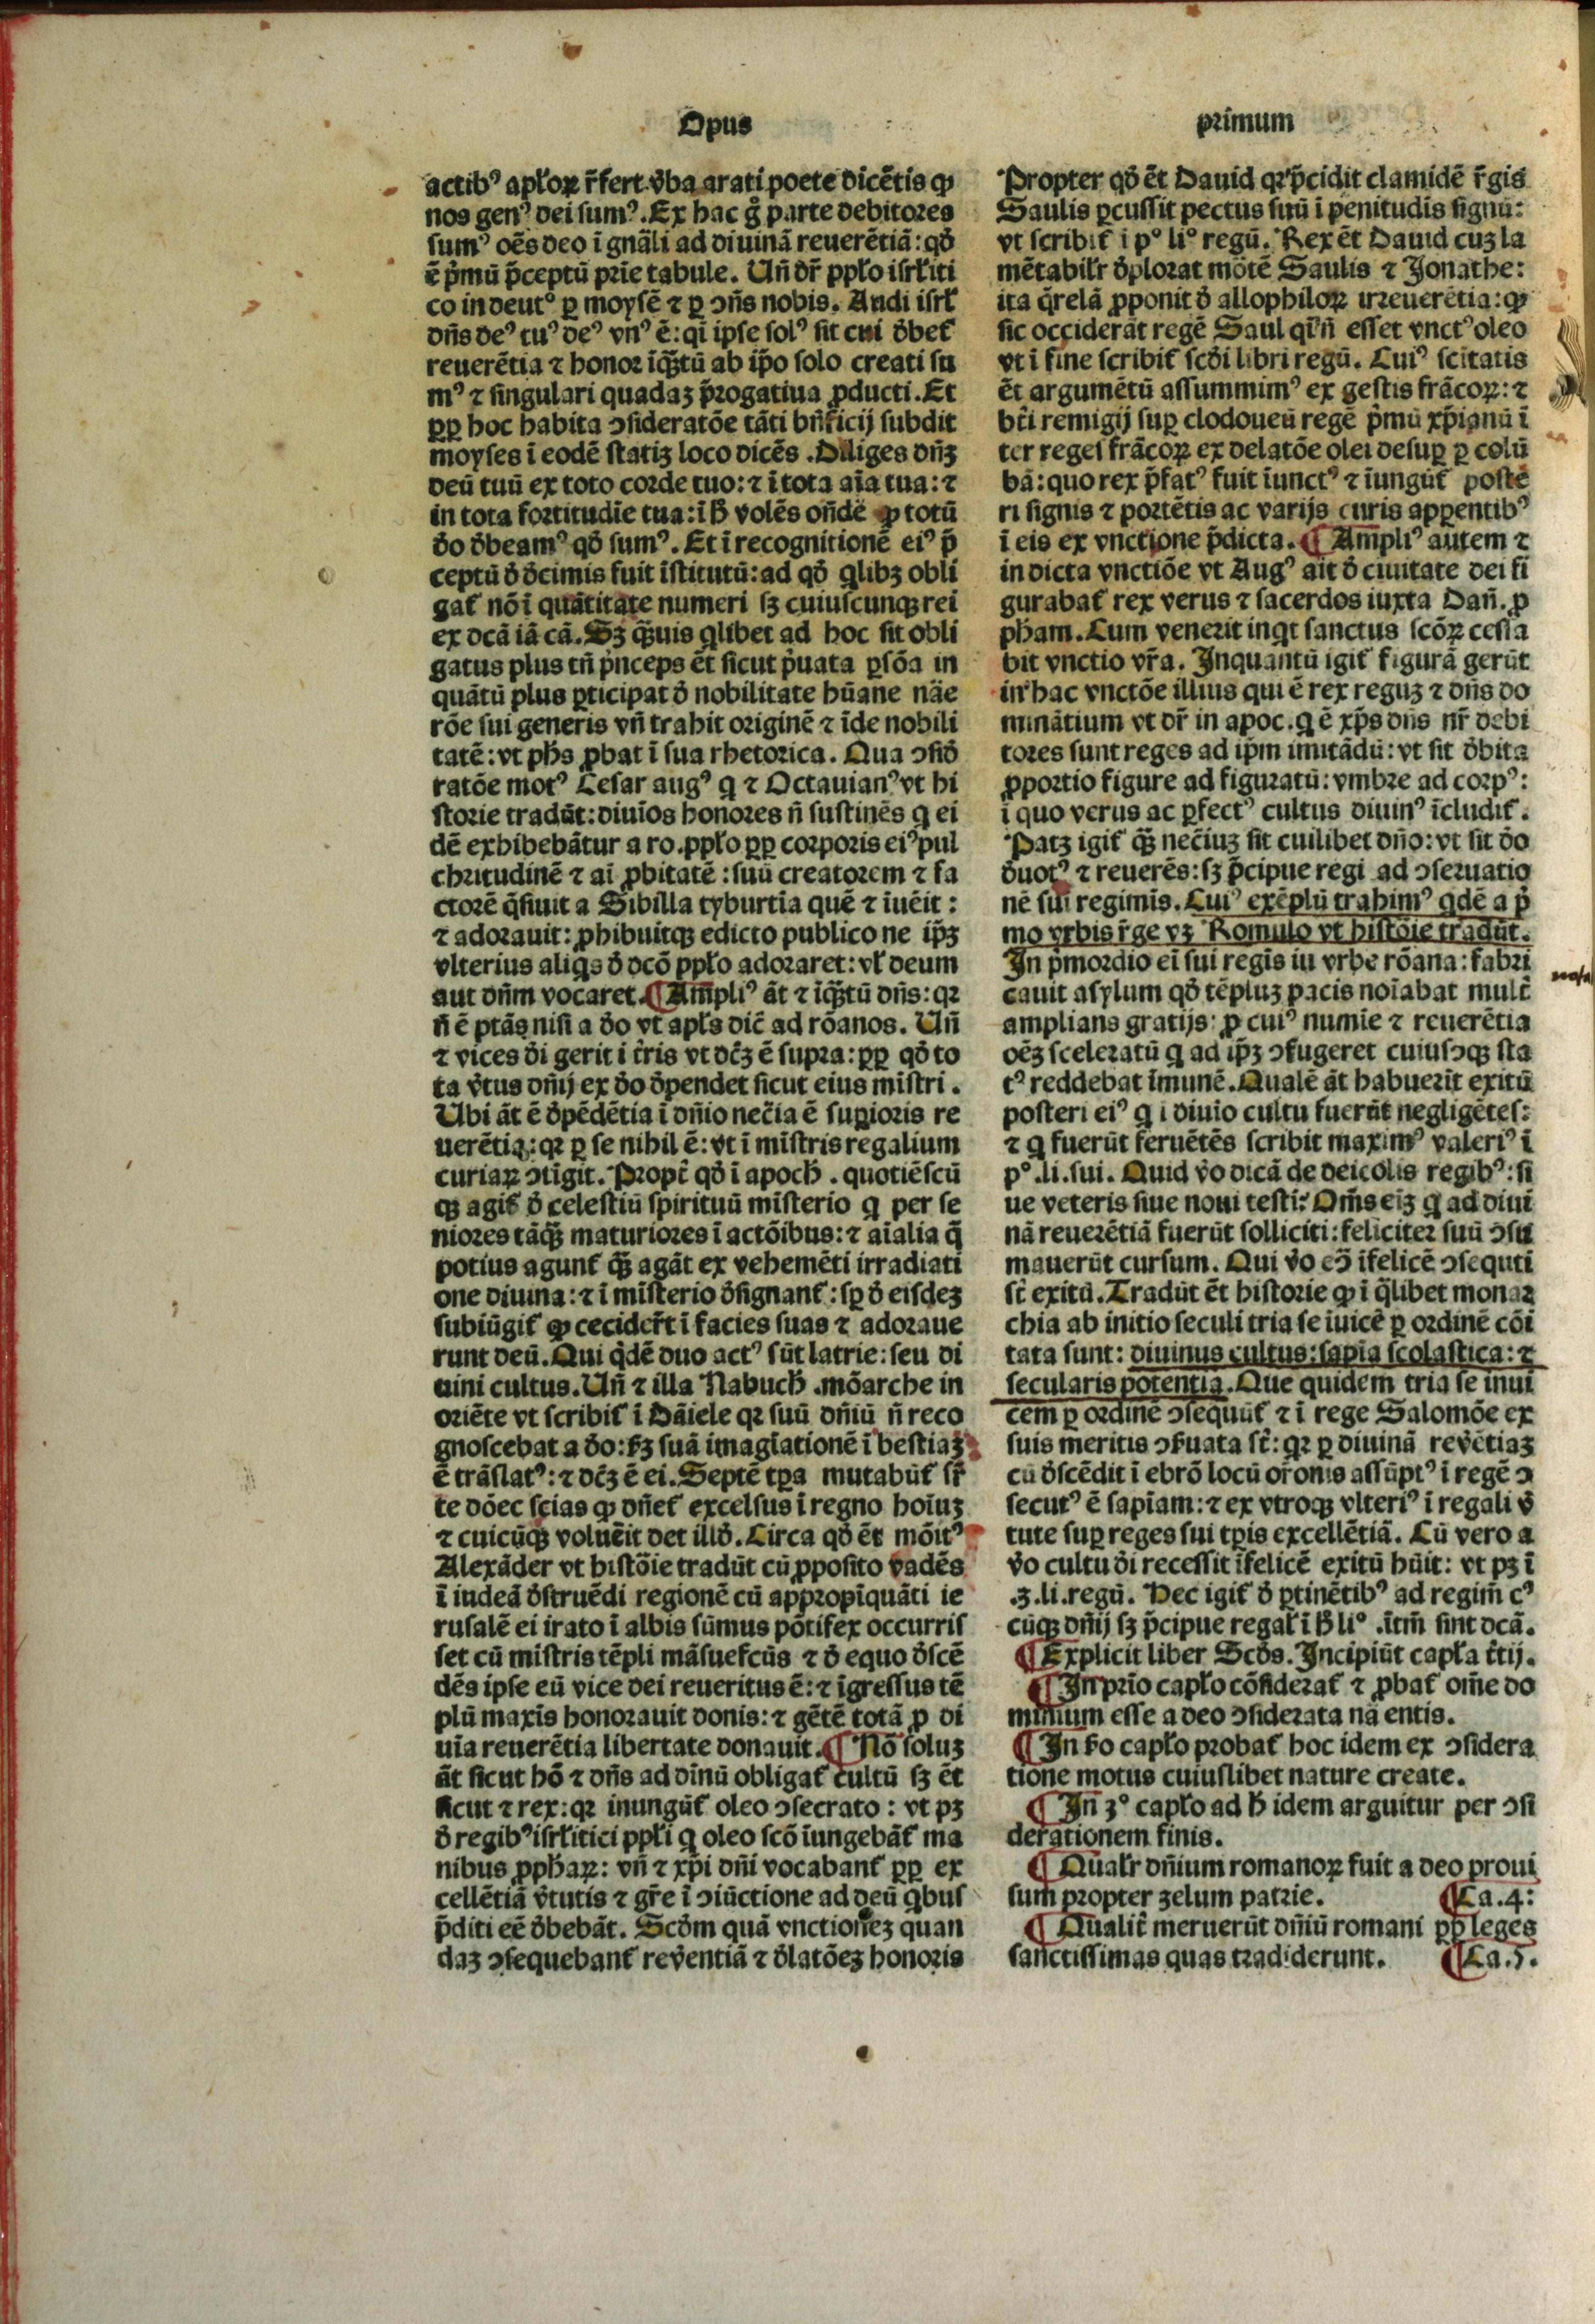 Opus
primum
actibꝰ apłoꝝ r̃fert v̓ba arati poete dicẽtis ꝙ
nos genꝰ dei sumꝰ. Ex hac g̊ parte debitores
sumꝰ oẽs deo ĩ gnãli ad diuinã reuerẽtiã: qð
ẽ p̓mũ p̃ceptũ prie tabule. Uñ dr̃ ppło isrłiti
co in deutº ꝑ moysẽ ⁊ ꝑ ↄñs nobis. Audi isrł
dñs deꝰ tuꝰ deꝰ vnꝰ ẽ: qĩ ipse solꝰ sit cui ðbet᷑
reuerẽtia ⁊ honor ĩq̃ꝫtũ ab ip̃o solo creati su
mꝰ ⁊ singulari quadaꝫ p̃rogatiua ꝓducti. Et
ꝓꝑ hoc habita ↄsideratõe tãti bñficij subdit
moyses ĩ eodẽ statiꝫ loco dicẽs. Diliges dñꝫ
deũ tuũ ex toto corde tuo: ⁊ ĩ tota aĩa tua: ⁊
in tota fortitudĩe tua: ĩ ꝧ volẽs oñdẽ ꝙ totũ
ðo ðbeamꝰ qð sumꝰ. Et ĩ recognitionẽ eiꝰ p̃
ceptũ ð ðcimis fuit ĩstitutũ: ad qð q̓libꝫ obli
gat᷑ nõ ĩ quãtitate numeri sꝫ cuiuscunqꝫ rei
ex dcã iã cã. Sꝫ q̃ꝫuis q̓libet ad hoc sit obli
gatus plus tñ p̓nceps ẽt sicut p̓uata ꝑsõa in
quãtũ plus ꝑticipat ð nobilitate hũane nãe
rõe sui generis vñ trahit originẽ ⁊ ĩde nobili
tatẽ: vt pħs ꝓbat ĩ sua rhetorica. Qua ↄsið
ratõe motꝰ Cesar augꝰ q̓ ⁊ Octauianꝰ vt hi
storie tradũt: diuĩos honores ñ sustinẽs q̓ ei
dẽ exhibebãtur a ro. ppło ꝓꝑ corporis eiꝰ pul
chritudinẽ ⁊ aĩ ꝓbitatẽ: suũ creatorem ⁊ fa
ctorẽ q̃siuit a Sibilla tyburtĩa quẽ ⁊ ĩuẽit:
⁊ adorauit: ꝓhibuitqꝫ edicto publico ne ip̃ꝫ
vlterius aliq̓s ð dcõ ppło adoraret: vł deum
aut dñm vocaret. ¶Ampliꝰ ãt ⁊ ĩq̃ꝫtũ dñs: qꝛ
ñ ẽ ptãs nisi a ðo vt apłs dic̃ ad rõanos. Uñ
⁊ vices ði gerit ĩ tr̃is vt dc̃ꝫ ẽ supra: ꝓꝑ qð to
ta v̓tus dñij ex ðo ðpendet sicut eius mĩstri.
Ubi ãt ẽ ðpẽdẽtia ĩ dñio nec̃ia ẽ suꝑioris re
uerẽtia: qꝛ ꝑ se nihil ẽ: vt ĩ mĩstris regalium
curiaꝝ ↄtĩgit. Propt̃ qð ĩ apocħ. quotiẽscũ
qꝫ agit᷑ ð celestiũ spirituũ mĩsterio q̓ per se
niores tãq̃ꝫ maturiores ĩ actõibus: ⁊ aĩalia q̃
potius agunt᷑ q̃ꝫ agãt ex vehemẽti irradiati
one diuina: ⁊ ĩ mĩsterio ðsignant᷑: sꝑ ð eisdeꝫ
subiũgit᷑ ꝙ cecider̃t ĩ facies suas ⁊ adoraue
runt deũ. Qui q̓dẽ duo actꝰ sũt latrie: seu di
uini cultus. Uñ ⁊ illa Nabucħ. mõarche in
oriẽte vt scribit᷑ ĩ Dãiele qꝛ suũ dñiũ ñ reco
gnoscebat a ðo: sꝫ suã imagĩationẽ ĩ bestiaꝫ
ẽ trãslatꝰ: ⁊ dc̃ꝫ ẽ ei. Septẽ tꝑa mutabũt᷑ sr̃
te dõec scias ꝙ dñet᷑ excelsus ĩ regno hoĩuꝫ
⁊ cuicũqꝫ voluẽit det illð. Circa qð ẽt mõitꝰ
Alexãder vt histõie tradũt cũ ꝓposito vadẽs
ĩ iudeã ðstruẽdi regionẽ cũ appropĩquãti ie
rusalẽ ei irato ĩ albis sũmus põtifex occurris
set cũ mĩstris tẽpli mãsuefcũs ⁊ ð equo ðscẽ
dẽs ipse eũ vice dei reueritus ẽ: ⁊ ĩgressus tẽ
plũ maxĩs honorauit donis: ⁊ gẽtẽ totã ꝓ di
uĩa reuerẽtia libertate donauit. ¶Nõ soluꝫ
ãt sicut hõ ⁊ dñs ad dĩnũ obligat᷑ cultũ sꝫ ẽt
sicut ⁊ rex: qꝛ inungũt᷑ oleo ↄsecrato: vt pꝫ
ð regibꝰ isrłitici ppłi q̓ oleo scõ ĩungebãt᷑ ma
nibus ꝓpħaꝝ: vñ ⁊ xp̃i dñi vocabant᷑ ꝓꝑ ex
cellẽtiã v̓tutis ⁊ gr̃e ĩ ↄiũctione ad deũ q̓bus
p̃diti eẽ ðbebãt. Scðm quã vnctioneꝫ quan
daꝫ ↄsequebant᷑ rev̓entiã ⁊ ðlatõeꝫ honoris
Propter qð ẽt Dauid qꝛ p̃cidit clamidẽ r̃gis
Saulis ꝑcussit pectus suũ ĩ penitudĩs signũ:
vt scribit᷑ ĩ pº liº regũ. Rex ẽt Dauid cuꝫ la
mẽtabilr̃ ðplorat mõtẽ Saulis ⁊ Jonathe:
ita q̃relã ꝓponit ð allophiloꝝ irreuerẽtia: ꝙ
sic occiderãt regẽ Saul q̓si ñ esset vnctꝰ oleo
vt ĩ fine scribit᷑ scði libri regũ. Cuiꝰ scĩtatis
ẽt argumẽtũ assummimꝰ ex gestis frãcoꝝ: ⁊
bt̃i remigij suꝑ clodoueũ regẽ p̓mũ xp̃ianũ ĩ
ter reges frãcoꝝ ex delatõe olei desuꝑ ꝑ colũ
bã: quo rex p̃fatꝰ fuit ĩunctꝰ ⁊ ĩungũt᷑ poste
ri signis ⁊ portẽtis ac varijs curis apꝑentibꝰ
ĩ eis ex vnctione p̃dicta. ¶Ampliꝰ autem ⁊
in dicta vnctiõe vt Augꝰ ait ð ciuitate dei fi
gurabat᷑ rex verus ⁊ sacerdos iuxta Dañ. ꝓ
pħam. Cum venerit inq̓t sanctus scõꝝ cessa
bit vnctio vr̃a. Inquantũ igit᷑ figurã gerũt
in hac vnctõe illius qui ẽ rex reguꝫ ⁊ dñs do
minãtium vt dr̃ in apoc. q̓ ẽ xp̃s dñs nr̃ debi
tores sunt reges ad ip̃m imitãdũ: vt sit ðbita
ꝓportio figure ad figuratũ: vmbre ad corpꝰ:
ĩ quo verus ac ꝑfectꝰ cultus diuinꝰ ĩcludit᷑.
Patꝫ igit᷑ q̃ꝫ nec̃iuꝫ sit cuilibet dño: vt sit ðo
ðuotꝰ ⁊ reuerẽs: sꝫ p̃cipue regi ad ↄseruatio
nẽ sui regimĩs. Cuiꝰ exẽplũ trahimꝰ q̓dẽ a p̓
mo vrbis r̃ge vꝫ Romulo vt histõie tradũt.
In p̓mordio ei sui regĩs iu vrbe rõana: fabri
cauit asylum qð tẽpluꝫ pacis noĩabat mult̃
amplians gratijs: ꝓ cuiꝰ numĩe ⁊ reuerẽtia
oẽꝫ sceleratũ q̓ ad ip̃ꝫ ↄfugeret cuiusↄqꝫ sta
tꝰ reddebat ĩmunẽ. Qualẽ ãt habuerĩt exitũ
posteri eiꝰ q̓ ĩ diuĩo cultu fuerũt negligẽtes:
⁊ q̓ fuerũt feruẽtẽs scribit maximꝰ valeriꝰ ĩ
pº. li. sui. Quid v̓o dicã de deicolis regibꝰ: si
ue veteris siue noui testi? Om̃s eiꝫ q̓ ad diui
nã reuerẽtiã fuerũt solliciti: feliciter suũ ↄsu
mauerũt cursum. Qui v̓o eↄ̃ ĩfelicẽ ↄsequti
st̃ exitũ. Tradũt ẽt historie ꝙ ĩ q̃libet monar
chia ab initio seculi tria se ĩuicẽ ꝑ ordinẽ cõi
tata sunt: diuinus cultus: sapĩa scolastica: ⁊
secularis potentia. Que quidem tria se inui
cem ꝑ ordinẽ ↄsequũt᷑ ⁊ ĩ rege Salomõe ex
suis meritis ↄẜuata st̃: qꝛ ꝑ diuinã rev̓ẽtiaꝫ
cũ ðscẽdit ĩ ebrõ locũ or̃onis assũptꝰ ĩ regẽ ↄ
secutꝰ ẽ sapĩam: ⁊ ex vtroqꝫ vlteriꝰ ĩ regali v̓
tute suꝑ reges sui tꝑis excellẽtiã. Cũ vero a
v̓o cultu ði recessit ĩfelicẽ exitũ hũit: vt pꝫ ĩ
.3. li. regũ. Hec igit᷑ ð ꝑtinẽtibꝰ ad regim̃ cꝰ
cũqꝫ dñij sꝫ p̃cipue regał ĩ ꝧ liº. ĩtm̃ sint dcã.
¶Explicit liber Scðs. Incipiũt capła t̃tij.
¶In prĩo capło cõsiderat᷑ ⁊ ꝓbat᷑ om̃e do
minium esse a deo ↄsiderata nã entis.
¶In ẜo capło probat᷑ hoc idem ex ↄsidera
tione motus cuiuslibet nature create.
¶In 3º capło ad ꝧ idem arguitur per ↄsi
derationem finis.
¶Qualr̃ dñium romanoꝝ fuit a deo proui
sum propter zelum patrie. ¶Ca. 4:
¶Qualit̃ meruerũt dñiũ romani ꝓꝑ leges
sanctissimas quas tradiderunt. ¶Ca. 5.
nota